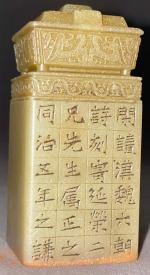 讀漢魏六朝
詩刻寄延榮二
兄先生屬正之
同治五年之謙